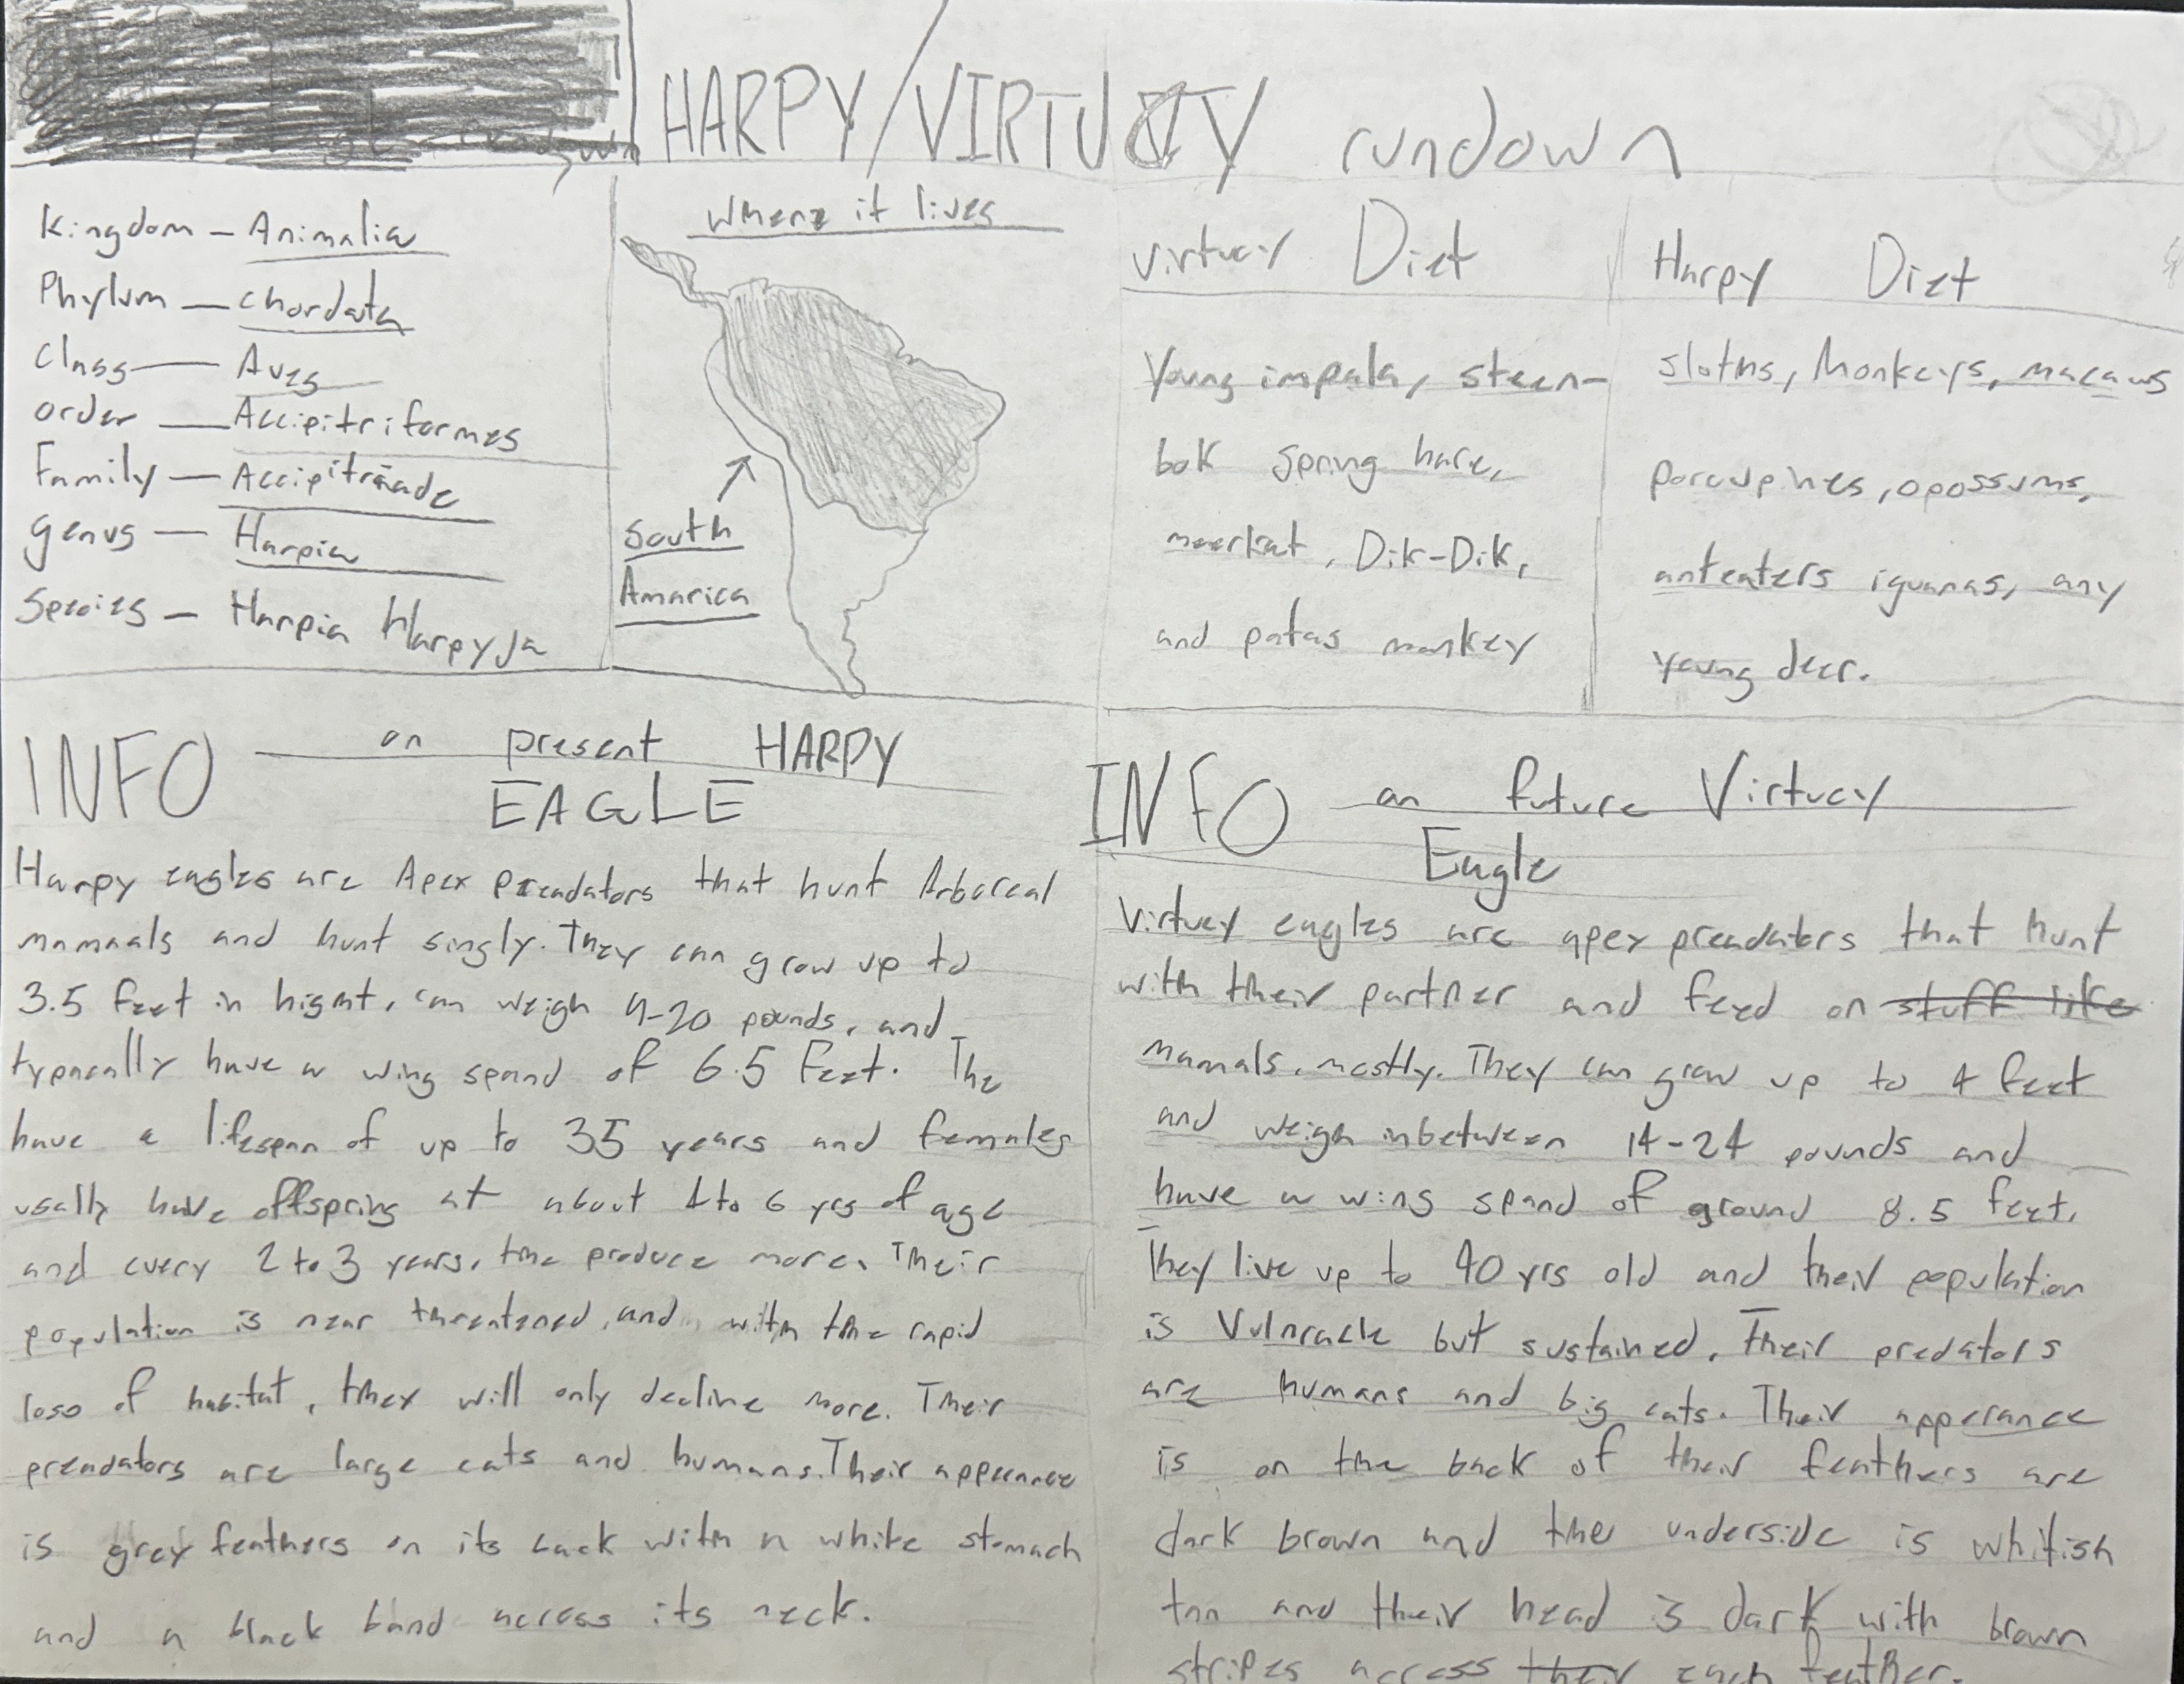 HARPY/VIRTUCY rundown
Kingdom - Animalia
Phylum - chordata
Class - Aves
order - Accipitriformes
Family - Accipitraade
Genus - Harpia
Species - Harpia Harpyja
where it lives
South
Amarica
virtucy Diet
Young impala, steen-
bok spring hare,
meerkat, Dik-Dik,
and patas monkey
Harpy Diet
sloths, Monkeys, macaws
porcupines, opossums,
anteaters iguanas, any
young deer.
INFO on present HARPY
EAGLE
Harpy eagles are Apex preadators that hunt Arboreal
mamaals and hunt singly. They can grow up to
3.5 feet in hight, can weigh 9-20 pounds, and
typacally have a wing spand of 6.5 feet. The
have a lifespan of up to 35 years and females
usally have offspring at about 4 to 6 yrs of age
and every 2 to 3 years, the produce more. Their
population is near threatened, and with the rapid
loso of habitat, they will only decline more. Their
preadators are large cats and humans. Their apperance
is grey feathers on its back with a white stomach
and a black band across its neck.
INFO on future Virtucy
Eagle
Virtucy eagles are apex preadators that hunt
with their partner and feed on stuff like
mamals, mostly. They can grow up to 4 feet
and weigh inbetween 14-24 pounds and
have a wing spand of ground 8.5 feet.
They live up to 40 yrs old and their population
is Vulnrable but sustained. Their predators
are humans and big cats. Their apperance
is on the back of their feathers are
dark brown and the underside is whitish
tan and their head is dark with brown
stripes access their each feather.